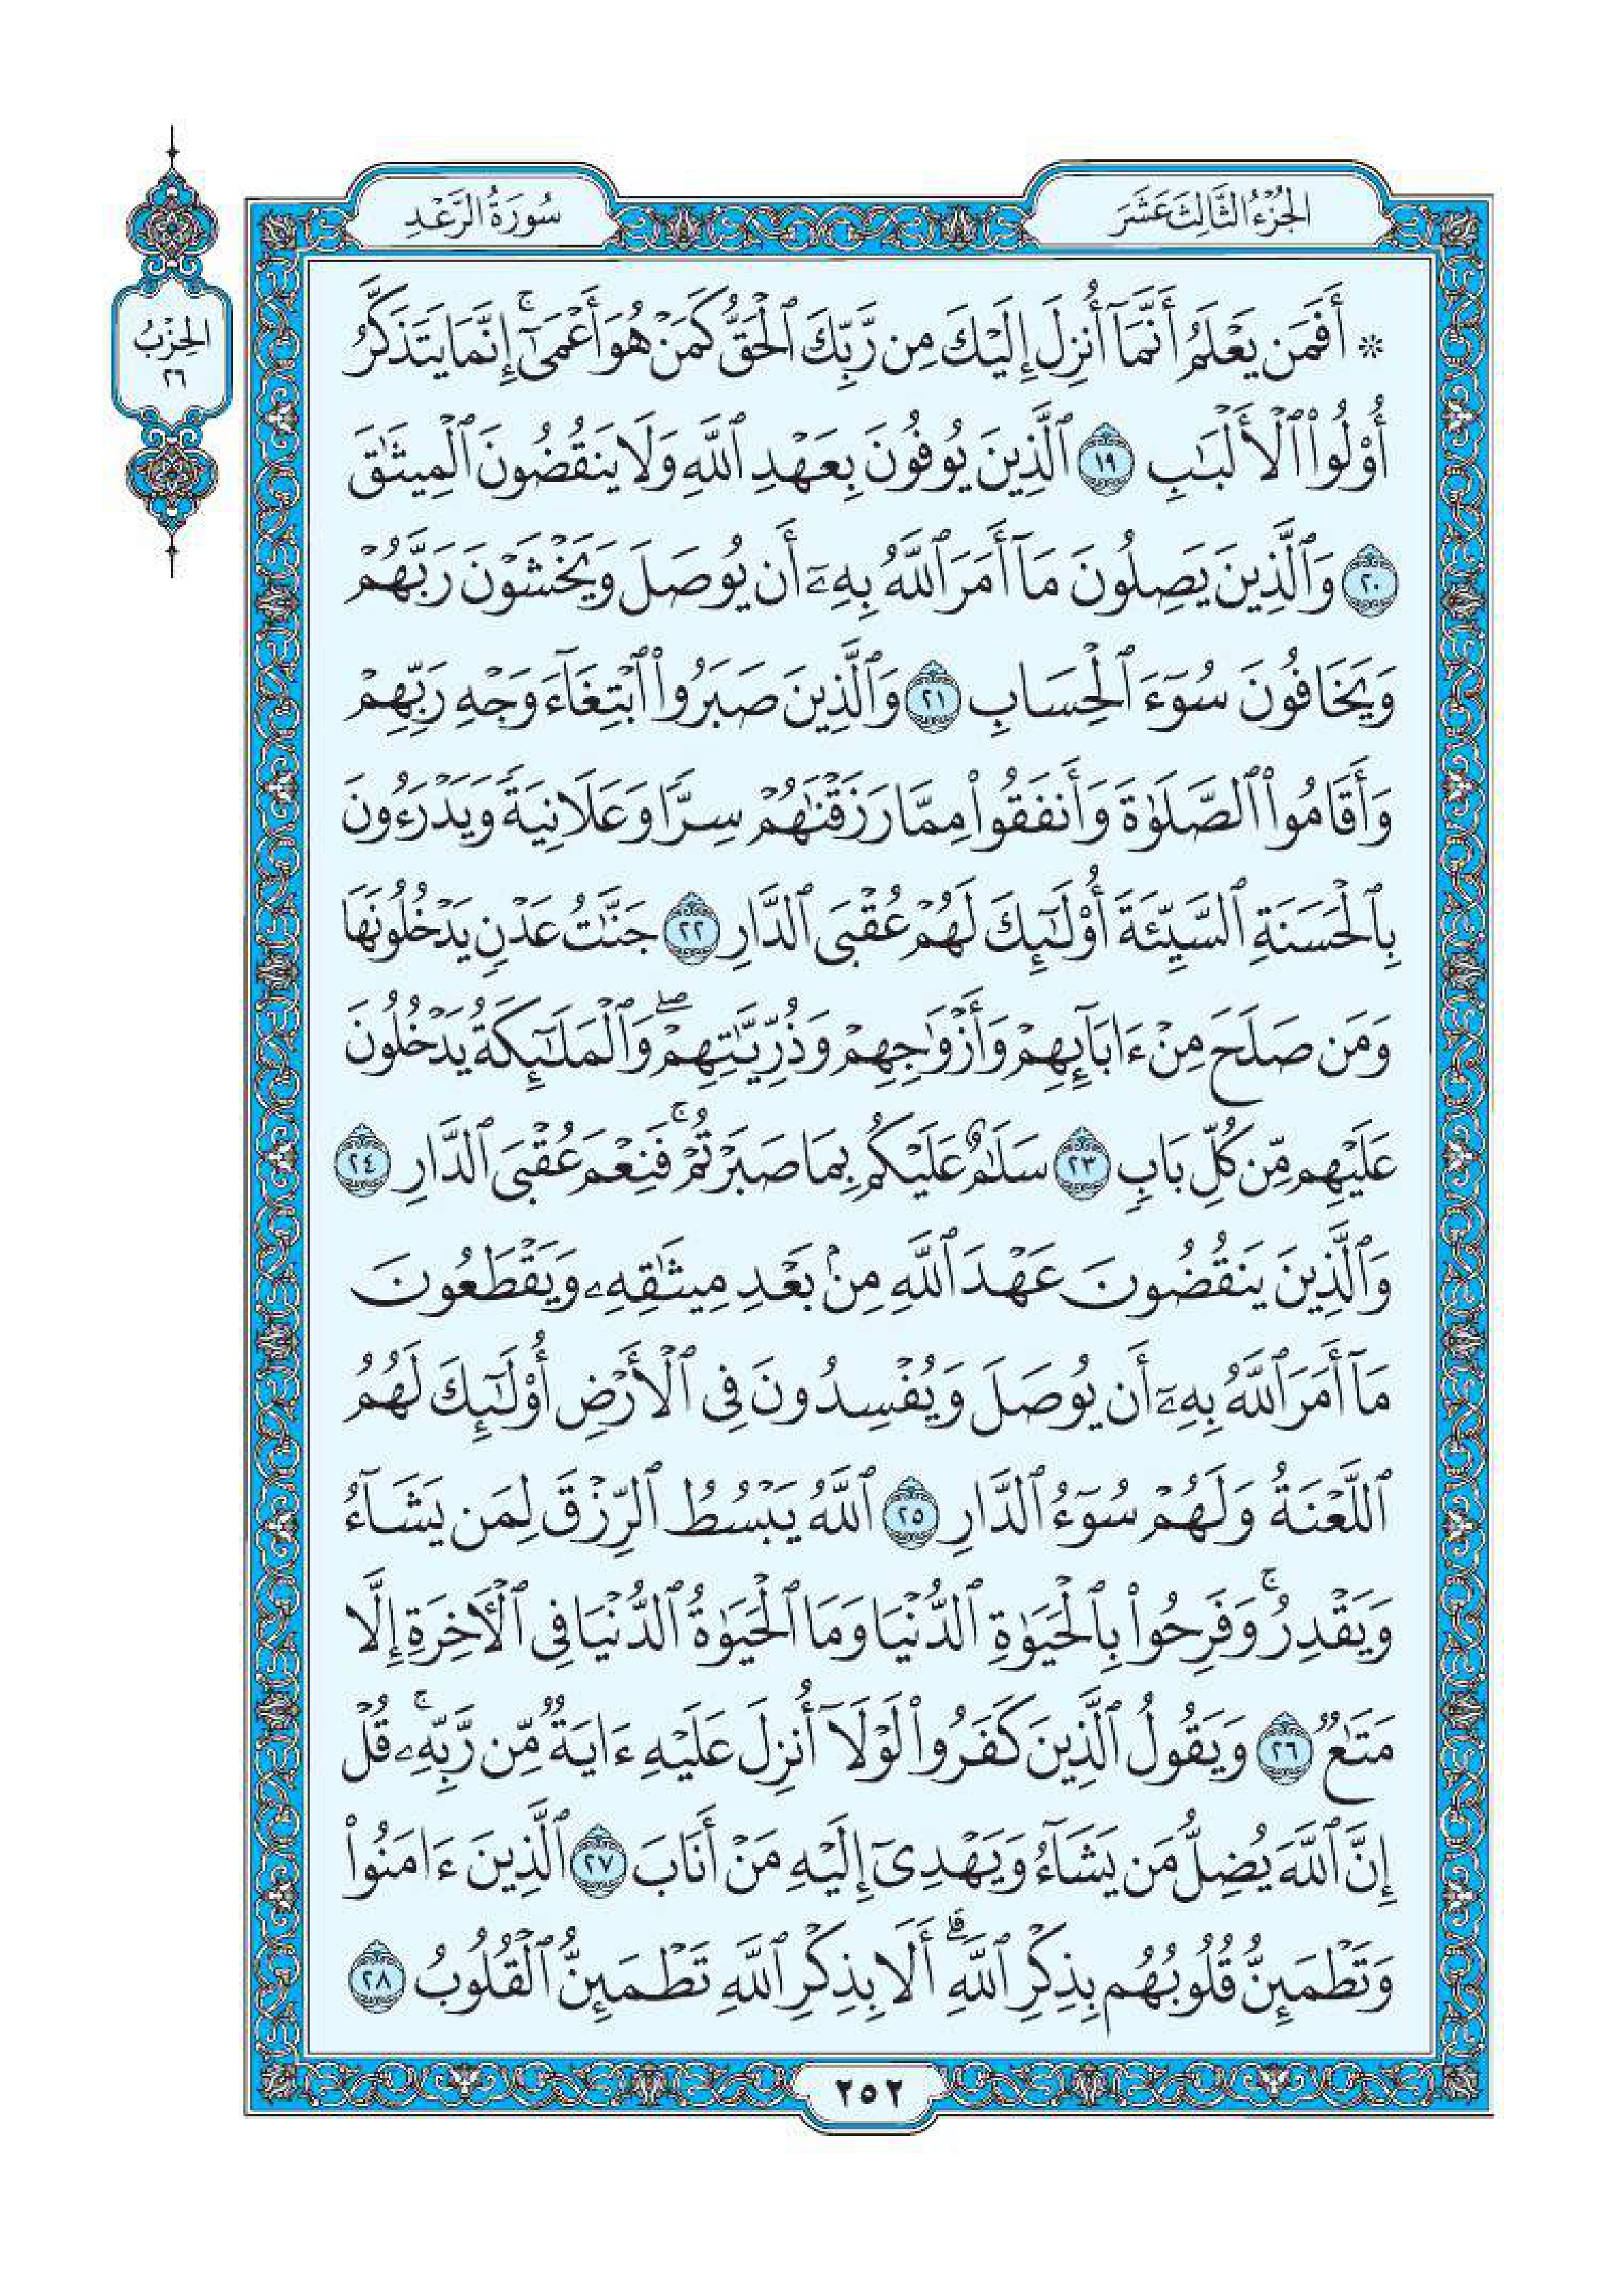 الجزء الثالث عشر
سورة الرعد
الحزب
٢٦
* أَفَمَن يَعْلَمُ أَنَّمَآ أُنزِلَ إِلَيْكَ مِن رَّبِّكَ ٱلْحَقُّ كَمَنْ هُوَ أَعْمَىٰٓ ۚ إِنَّمَا يَتَذَكَّرُ
أُو۟لُوا۟ ٱلْأَلْبَٰبِ ١٩ ٱلَّذِينَ يُوفُونَ بِعَهْدِ ٱللَّهِ وَلَا يَنقُضُونَ ٱلْمِيثَٰقَ
٢٠ وَٱلَّذِينَ يَصِلُونَ مَآ أَمَرَ ٱللَّهُ بِهِۦٓ أَن يُوصَلَ وَيَخْشَوْنَ رَبَّهُمْ
وَيَخَافُونَ سُوٓءَ ٱلْحِسَابِ ٢١ وَٱلَّذِينَ صَبَرُوا۟ ٱبْتِغَآءَ وَجْهِ رَبِّهِمْ
وَأَقَامُوا۟ ٱلصَّلَوٰةَ وَأَنفَقُوا۟ مِمَّا رَزَقْنَٰهُمْ سِرًّا وَعَلَانِيَةً وَيَدْرَءُونَ
بِٱلْحَسَنَةِ ٱلسَّيِّئَةَ أُو۟لَٰٓئِكَ لَهُمْ عُقْبَى ٱلدَّارِ ٢٢ جَنَّٰتُ عَدْنٍ يَدْخُلُونَهَا
وَمَن صَلَحَ مِنْ ءَابَآئِهِمْ وَأَزْوَٰجِهِمْ وَذُرِّيَّٰتِهِمْ ۖ وَٱلْمَلَٰٓئِكَةُ يَدْخُلُونَ
عَلَيْهِم مِّن كُلِّ بَابٍ ٢٣ سَلَٰمٌ عَلَيْكُم بِمَا صَبَرْتُمْ ۚ فَنِعْمَ عُقْبَى ٱلدَّارِ ٢٤
وَٱلَّذِينَ يَنقُضُونَ عَهْدَ ٱللَّهِ مِنۢ بَعْدِ مِيثَٰقِهِۦ وَيَقْطَعُونَ
مَآ أَمَرَ ٱللَّهُ بِهِۦٓ أَن يُوصَلَ وَيُفْسِدُونَ فِى ٱلْأَرْضِ أُو۟لَٰٓئِكَ لَهُمُ
ٱللَّعْنَةُ وَلَهُمْ سُوٓءُ ٱلدَّارِ ٢٥ ٱللَّهُ يَبْسُطُ ٱلرِّزْقَ لِمَن يَشَآءُ
وَيَقْدِرُ ۚ وَفَرِحُوا۟ بِٱلْحَيَوٰةِ ٱلدُّنْيَا وَمَا ٱلْحَيَوٰةُ ٱلدُّنْيَا فِى ٱلْءَاخِرَةِ إِلَّا
مَتَٰعٌ ٢٦ وَيَقُولُ ٱلَّذِينَ كَفَرُوا۟ لَوْلَآ أُنزِلَ عَلَيْهِ ءَايَةٌ مِّن رَّبِّهِۦ ۗ قُلْ
إِنَّ ٱللَّهَ يُضِلُّ مَن يَشَآءُ وَيَهْدِىٓ إِلَيْهِ مَنْ أَنَابَ ٢٧ ٱلَّذِينَ ءَامَنُوا۟
وَتَطْمَئِنُّ قُلُوبُهُم بِذِكْرِ ٱللَّهِ ۗ أَلَا بِذِكْرِ ٱللَّهِ تَطْمَئِنُّ ٱلْقُلُوبُ ٢٨
٢٥٢